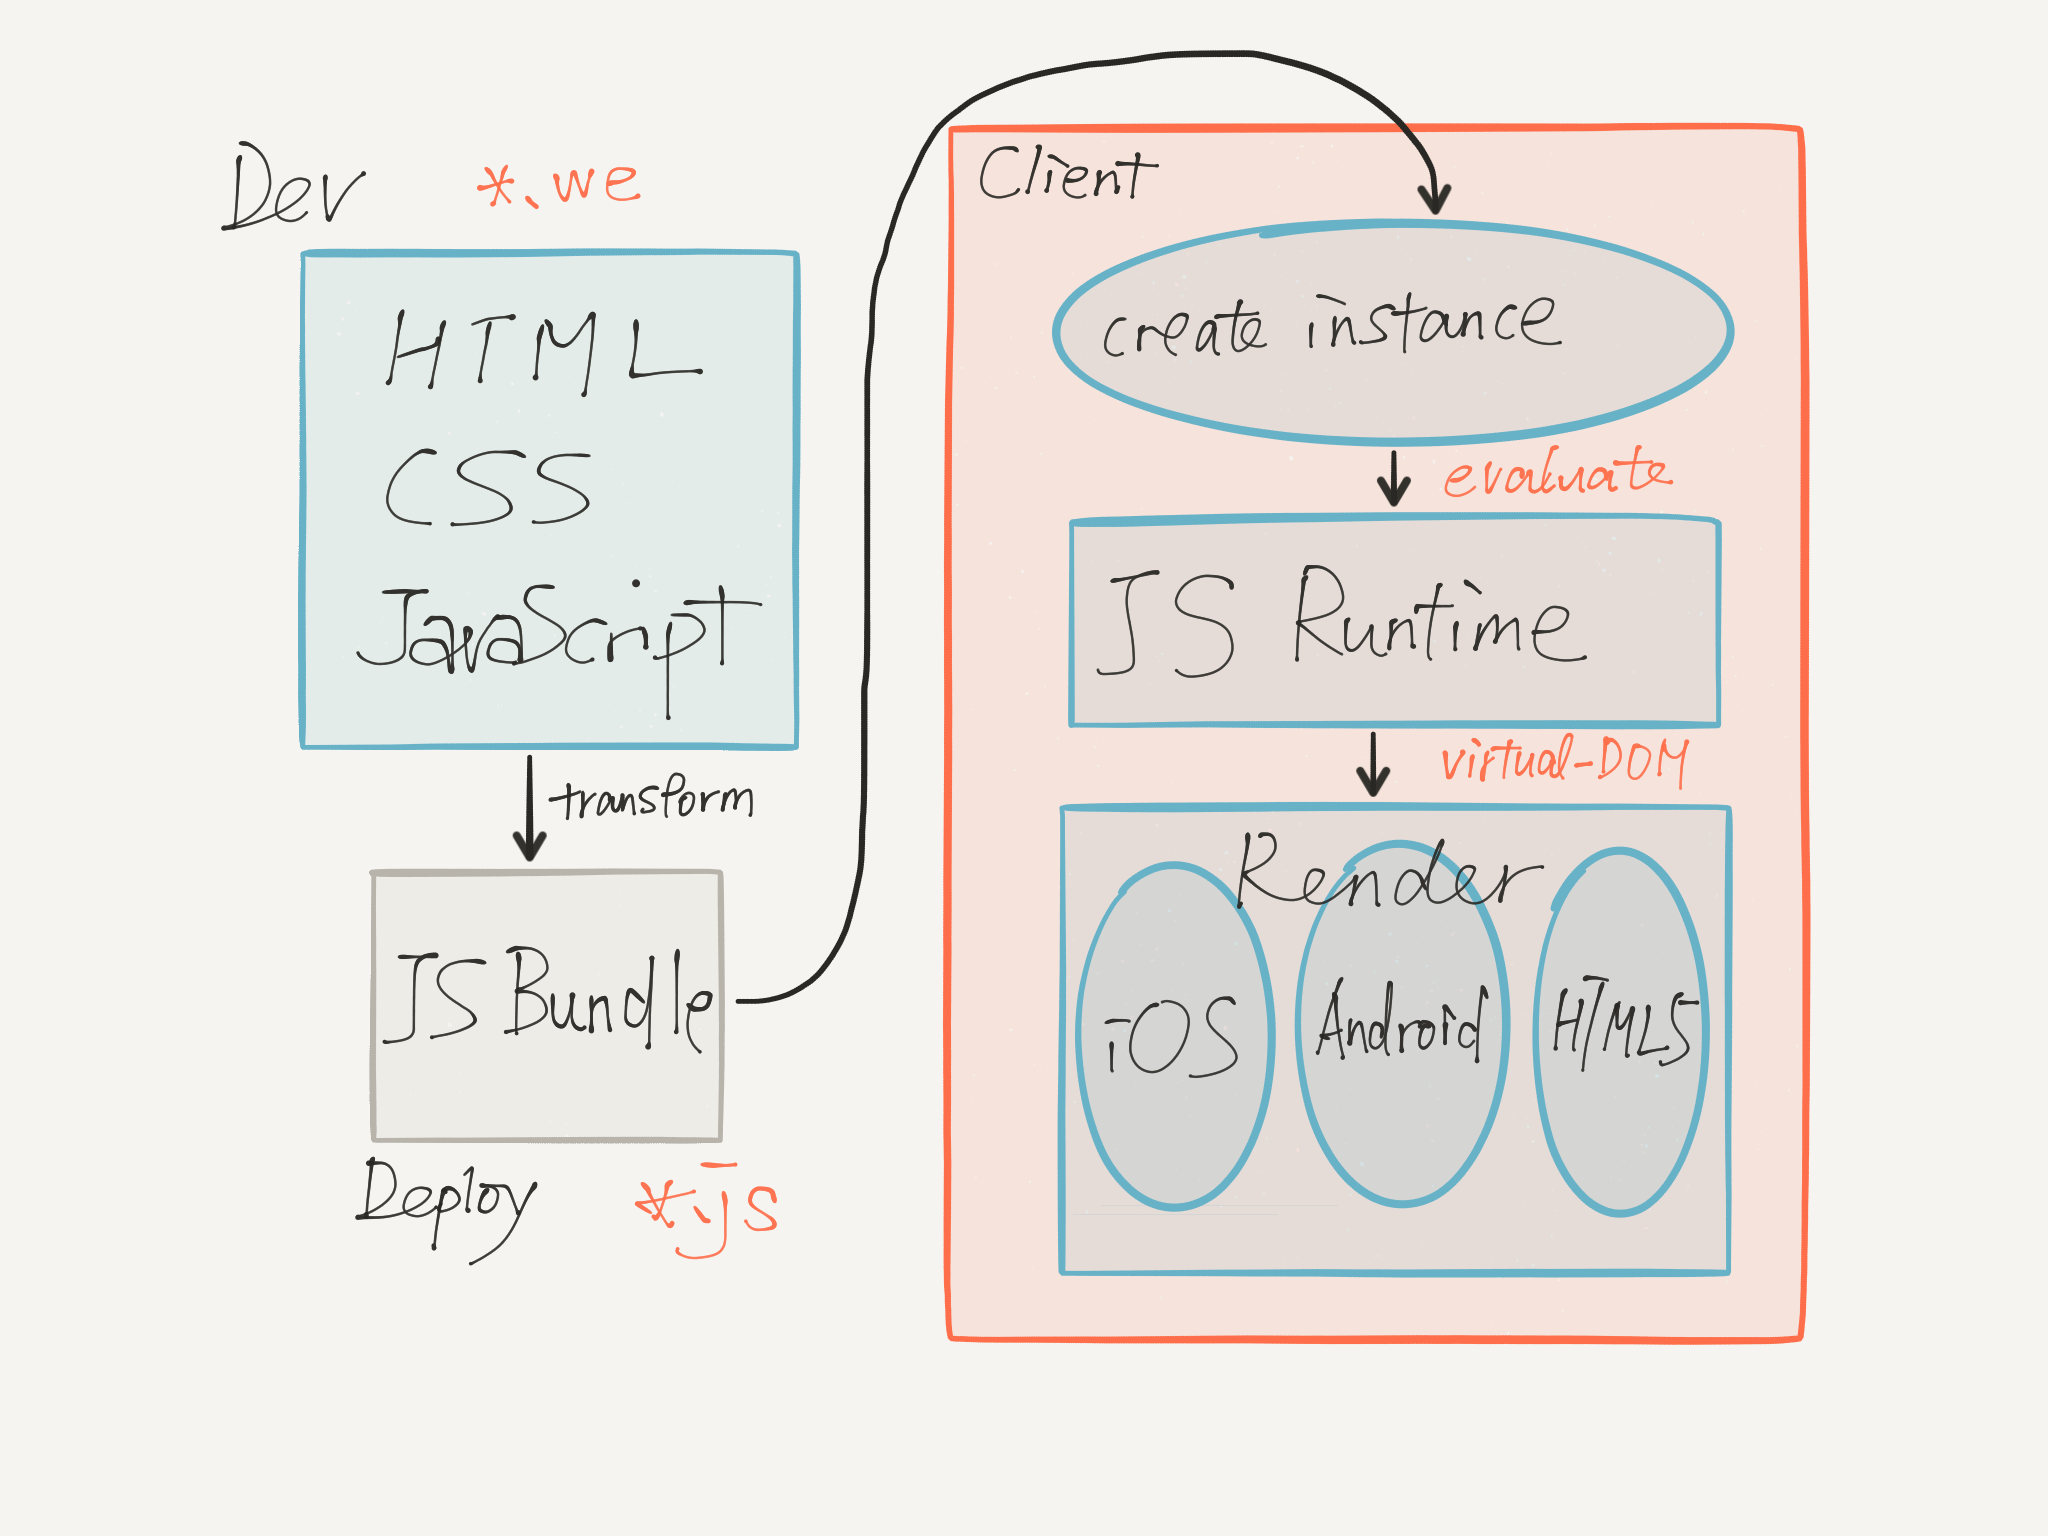 Dev
*.we
HTML
CSS
JavaScript
transform
JS Bundle
Deploy
*.js
Client
create instance
evaluate
JS Runtime
virtual-DOM
Render
iOS
Android
HTML5